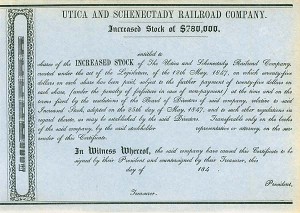 UTICA AND SCHENECTADY RAILROAD COMPANY.
Increased Stock of $780,000.
entitled to
shares of the INCREASED STOCK of The Utica and Schenectady Railroad Company,
created under the act of the Legislature, of the 12th May, 1847, on which twenty-five dollars and
each share has been paid, subject to the further payment of seventy-five dollars on
each share, (under the penalty of forfeiture in case of non-payment,) at the time and on the
terms fixed by the resolutions of the Board of Directors of said company, relative to said
Increased Stock, adopted on the 25th day of May, 1847, and to such other regulations in
regard thereto, as may be established by the said Directors. Transferable only on the books
of the said company, by the said stockholder representative or attorney, on the sur-
render of this Certificate.
In Witness Whereof, the said company have caused this Certificate to be
signed by their President and countersigned by their Treasurer, this
day of 184
President,
Treasurer.